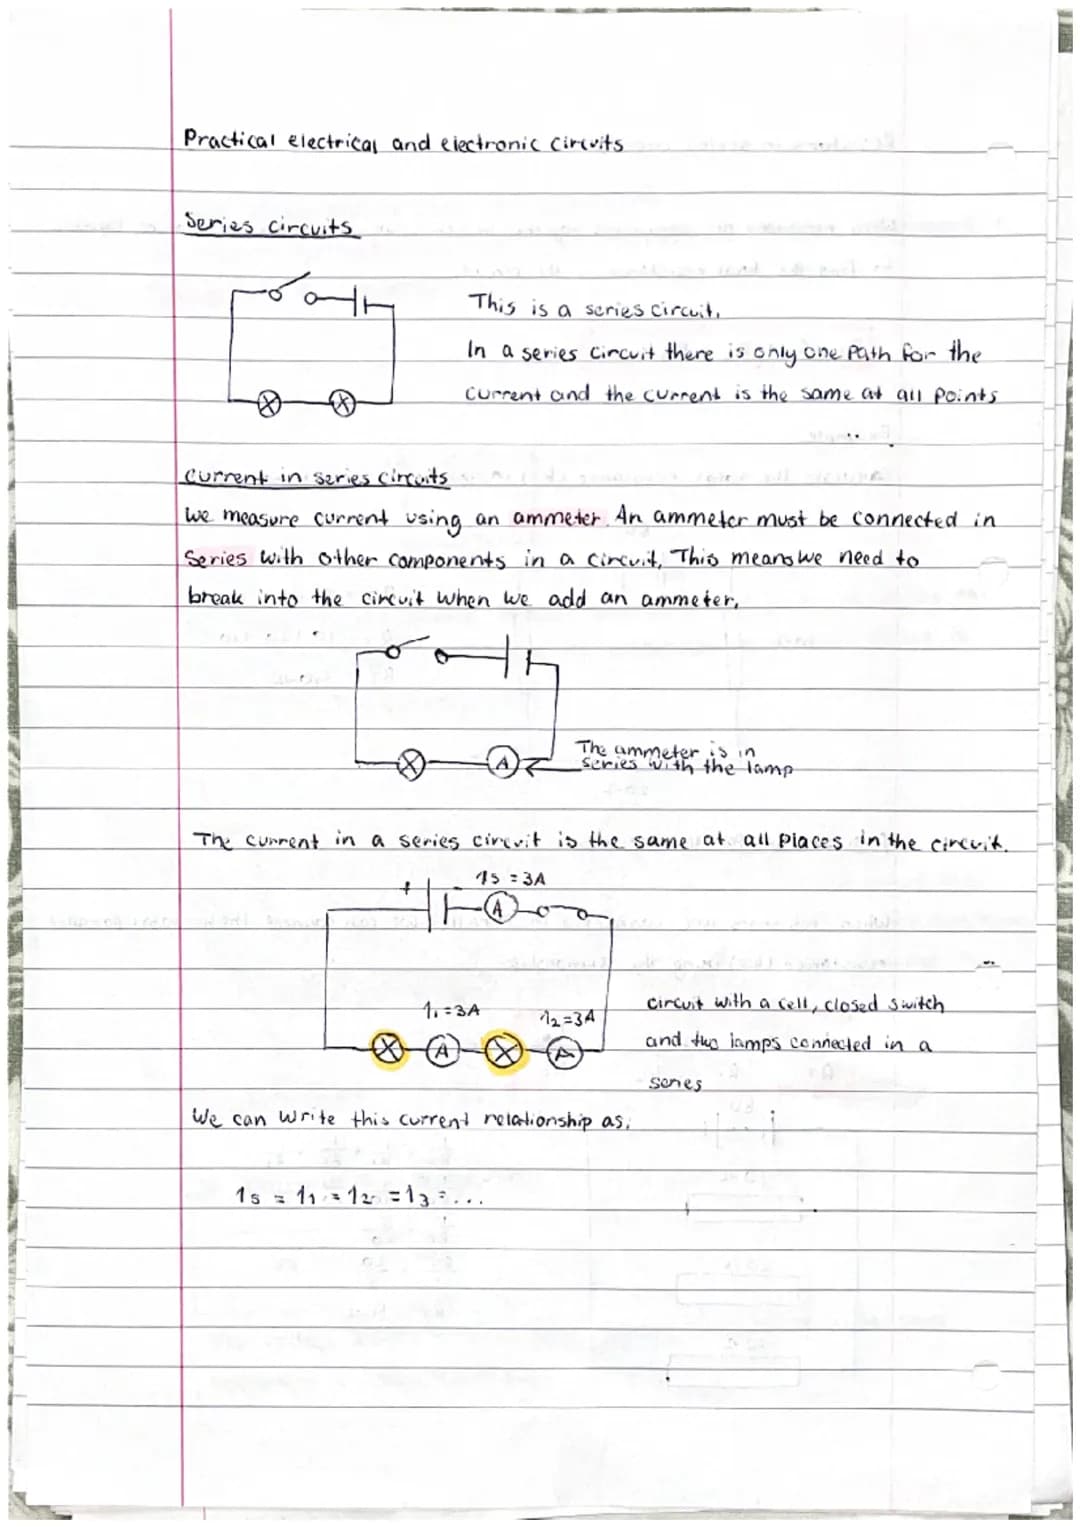 Practical electrical and electronic circuits
Series circuits
This is a series circuit.
In a series circuit there is only one path for the
current and the current is the same at all points
current in series circuits
We measure current using an ammeter. An ammeter must be connected in
Series with other components in a circuit, This means we need to
break into the circuit when we add an ammeter,
A
The ammeter is in
series with the lamp
The current in a series circuit is the same at all places in the circuit.
Is = 3A
+ -
A
I1 = 3A
I2 = 3A
A A
circuit with a cell, closed switch
and two lamps connected in a
series
We can write this current relationship as:
Is = I1 = I2 = I3 = ...